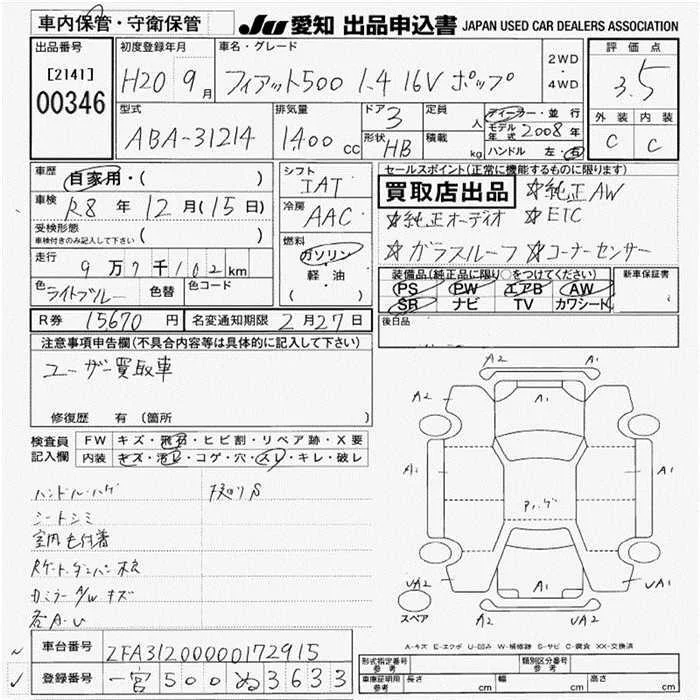 車内保管・守衛保管
JU 愛知 出品申込書 JAPAN USED CAR DEALERS ASSOCIATION
出品番号 [2141] 00346
初度登録年月 H20 9月
車名・グレード フィアット500 1.4 16V ポップ
2WD・4WD
評価点 3.5
型式 ABA-31214
排気量 1400cc
ドア 3
形状 HB
定員 人
積載 kg
ディーラー・並行
モデル年式 2008年
ハンドル 左・右
外装 内装
C C
車歴 自家用・( )
車検 R8年 12月(15日)
受検形態 車検付きのみ記入して下さい ( )
走行 9万7千102km
色 ライトブルー 色替 色コード
シフト IAT
冷房 AAC
燃料 ガソリン・軽油 ( ・ )
セールスポイント(正常に機能するものに限ります)
買取店出品 ☆純正AW
☆純正オーディオ ☆ETC
☆ガラスルーフ ☆コーナーセンサー
装備品(純正品に限り○をつけてください) 新車保証書
PS PW エアB AW
SR ナビ TV カワシート
後日品
R券 15670円 名変通知期限 2月27日
注意事項申告欄(不具合内容等は具体的に記入して下さい)
ユーザー買取車
修復歴 有 (箇所
検査員記入欄 FW キズ・飛石・ヒビ割・リペア跡・X要
内装 キズ・汚レ・コゲ・穴・スレ・キレ・破レ
ハンドルハゲ
シートシミ
室内
カドミラー A/W キズ
各A・U
A2 A1
A2 A1 UA1
A1 A1
A1
UA2 UA1
A2 UA2
スペア
A-キズ E-エクボ U-凹み W-補修跡 S-サビ C-腐食 XX-交換済
車台番号 ZFA31200000172915
登録番号 一宮500ぬ3633
形式指定番号 参考 類別区分番号 参考
車庫証明用 参考 長さ cm 幅 cm 高さ cm